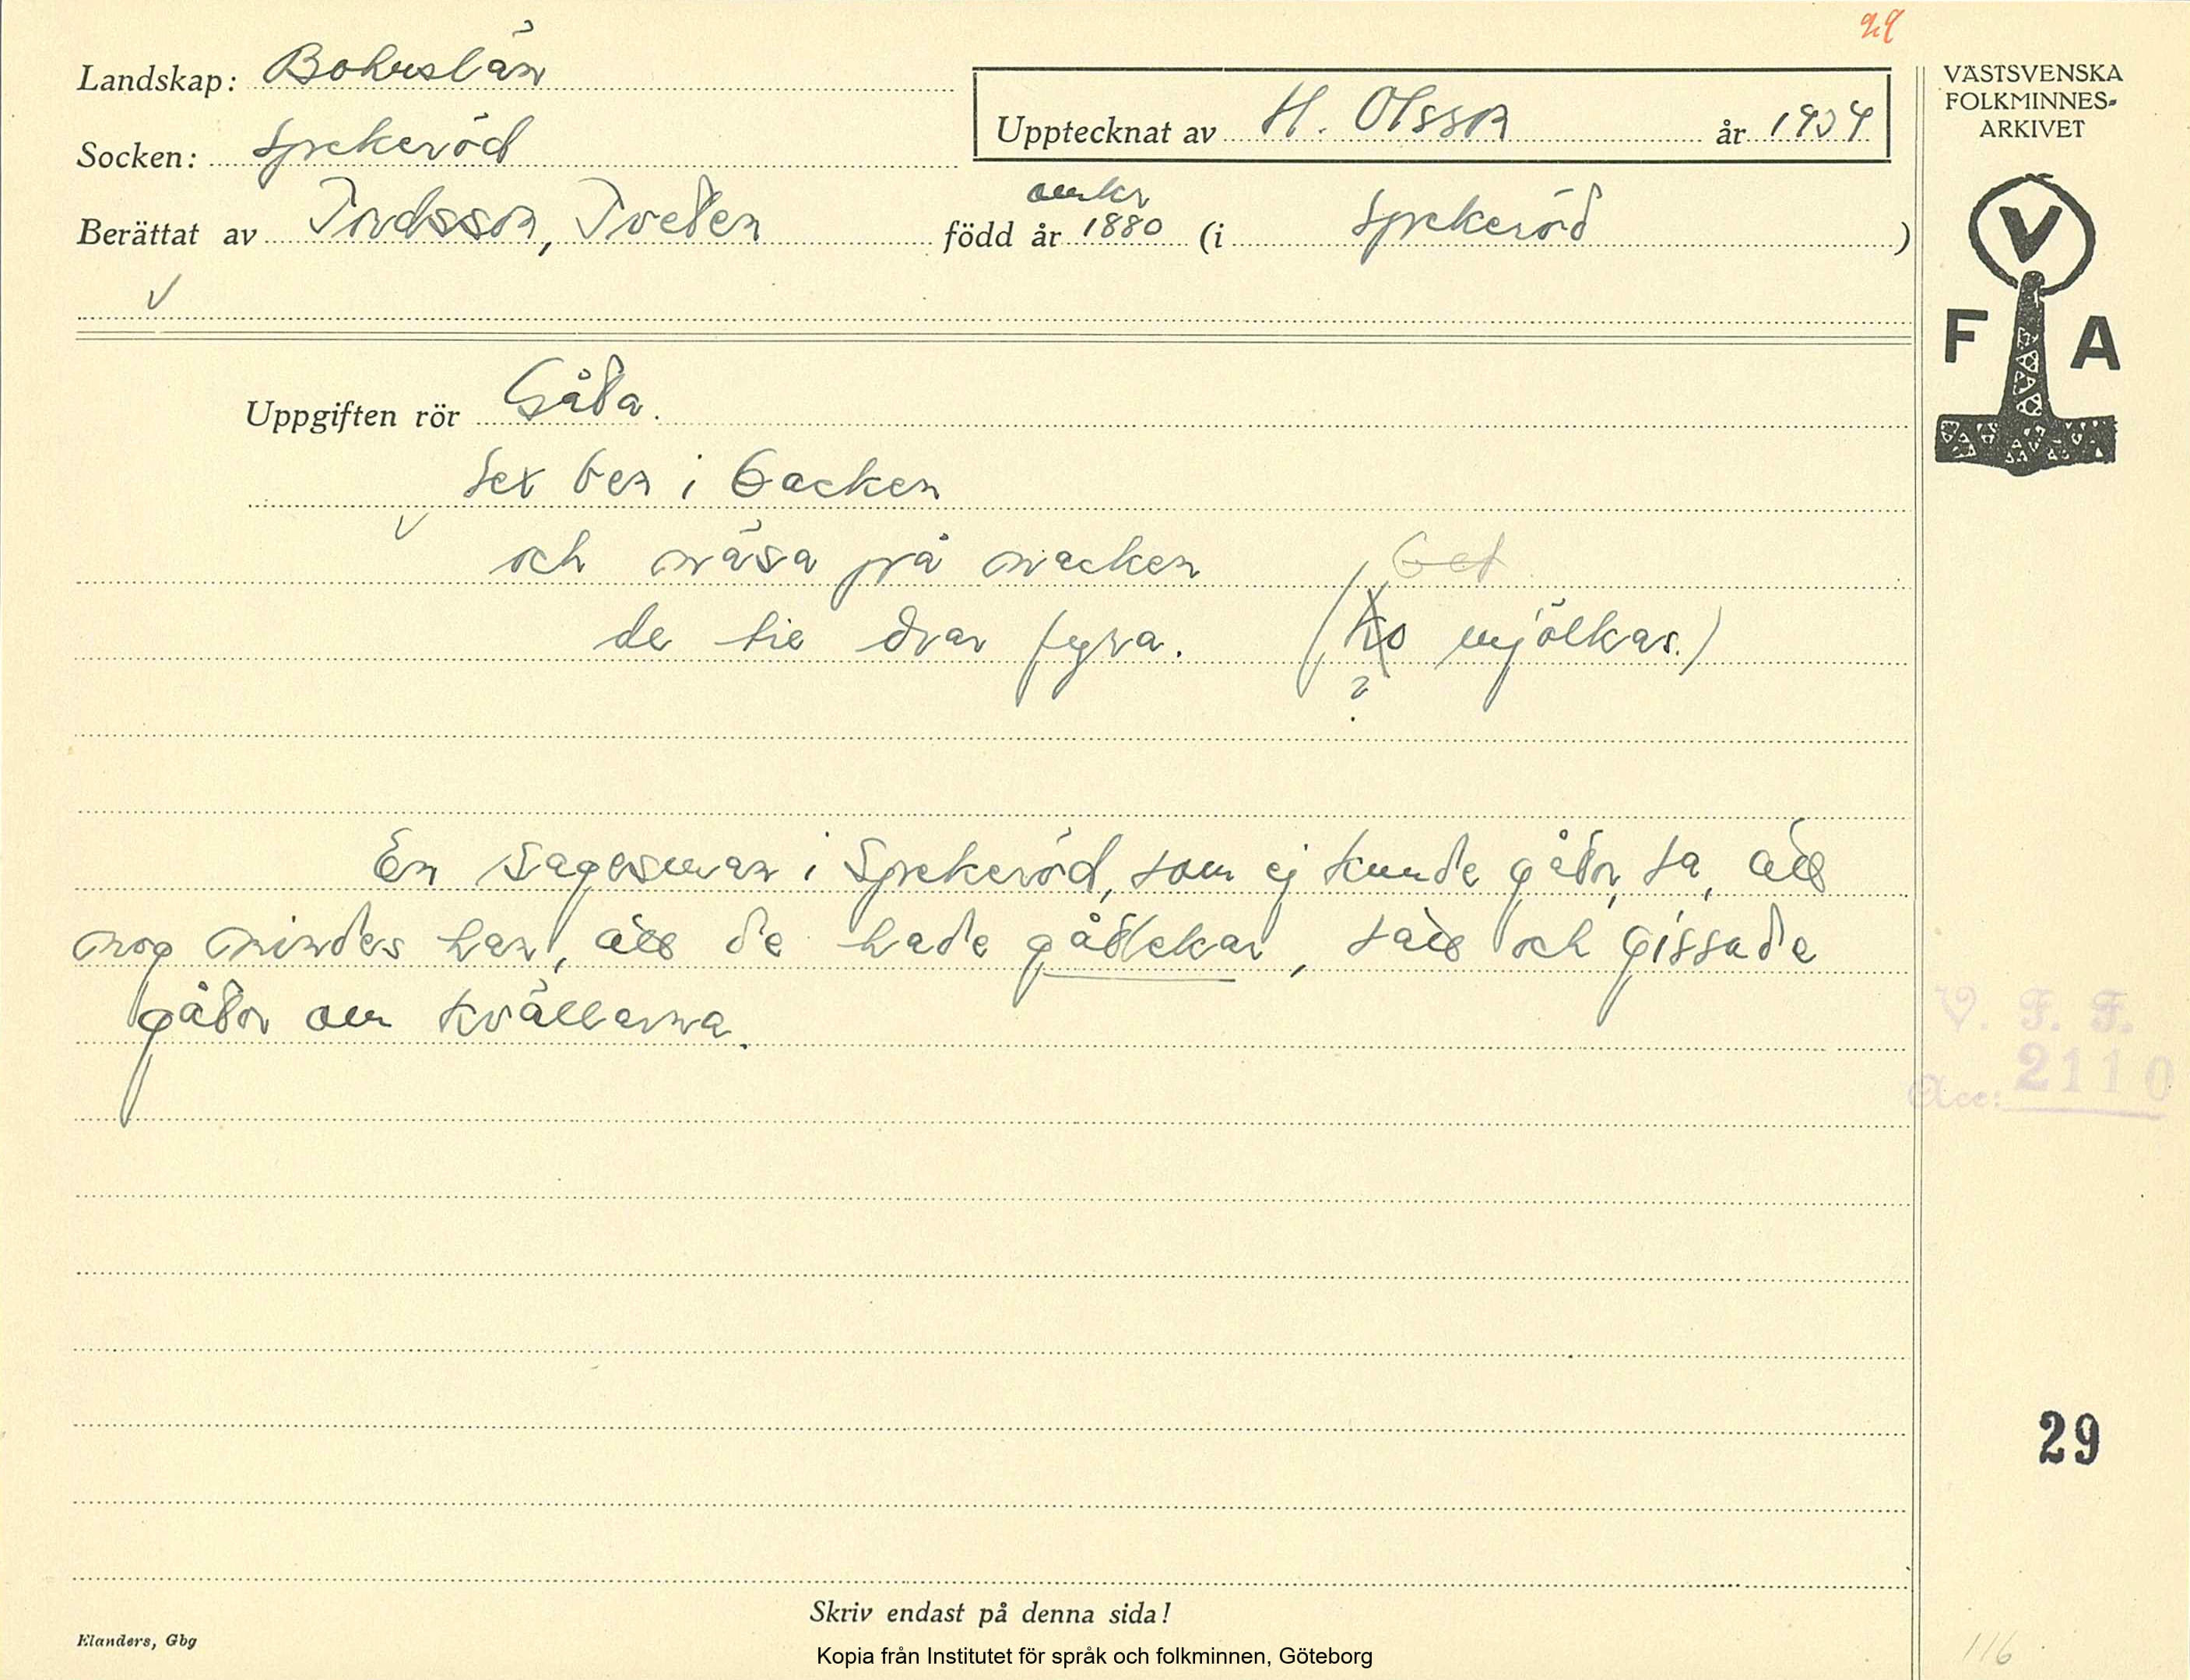 29
Landskap: Bohuslän
VÄSTSVENSKA
FOLKMINNES-
ARKIVET
Upptecknat av H. Olsson år 1934
Socken: Spekeröd
omkr
Berättat av Tordsson, Tveten född år 1880 (i Spekeröd)
V
F A
Uppgiften rör Gåda.
Sex ben i backen
och näsa på nacken
Get
de tie drar fyra. (Ko mjölkas.)
?
En sagesman i Spekeröd, som ej kunde gådor, sa, att
nog mindes han, att de hade gådlekar, satt och gissade
gådor om kvällarna.
V. F. F.
Acc: 2110
29
Skriv endast på denna sida!
Elanders, Gbg
Kopia från Institutet för språk och folkminnen, Göteborg
116